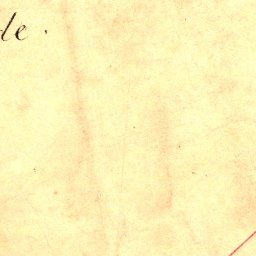 le .